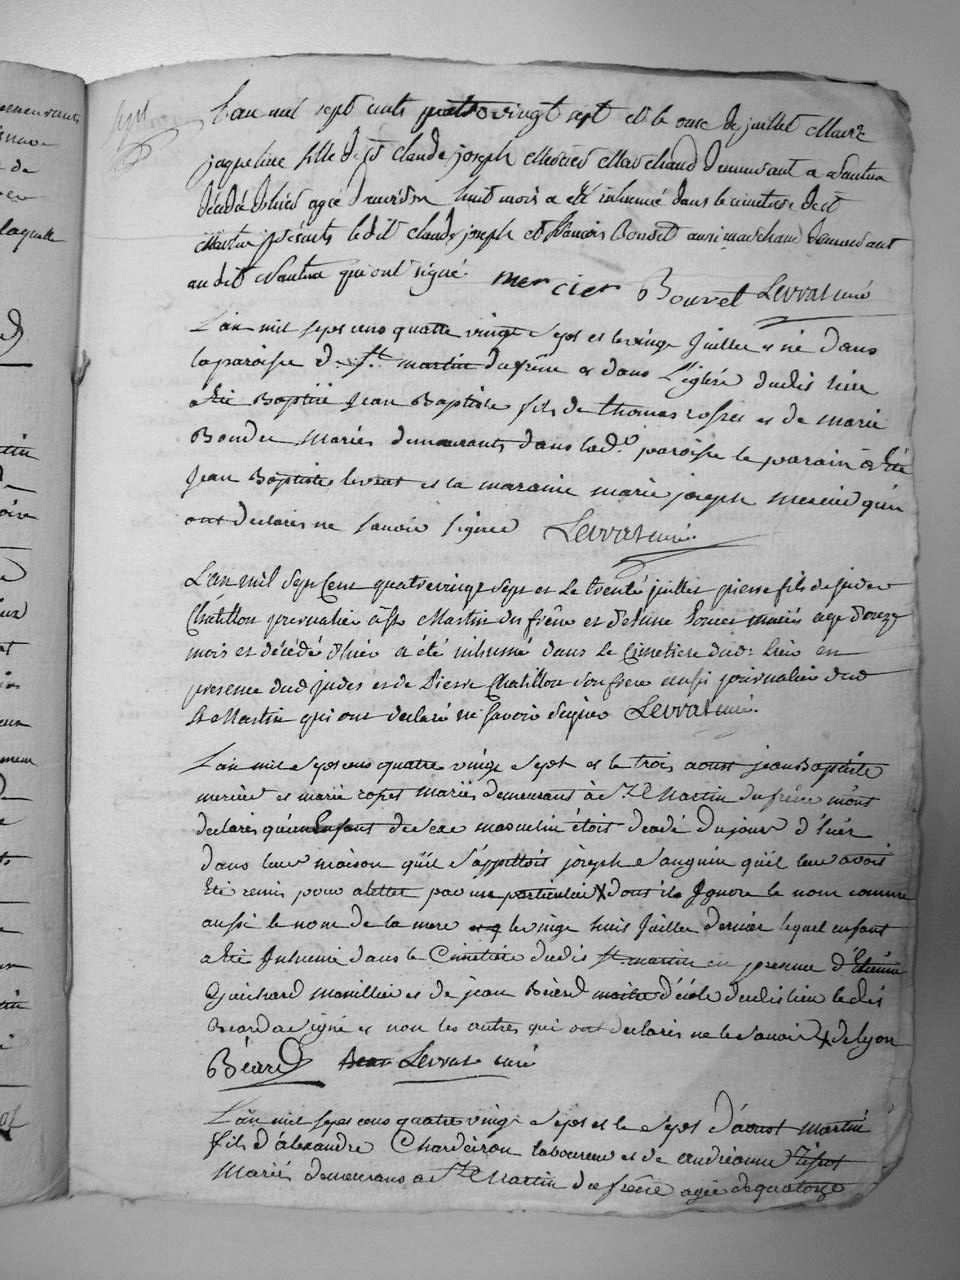 L'an mil sept cents quatrevingt sept et le onze de juillet Marie
jaqueline fille de Sr Claude joseph Mercier Marchand demeurant a Nantua
décédé d'hier agée d'environ huit mois a été inhumée dans le cimetiere de st
Martin présents ledit claude joseph et françois Bouvet aussi marchand demeurant
audit Nantua qui ont signé. mercier Bouvet Levrat curé
L'an mil sept cens quatre vingt Sept et le vingt Juillet est né dans
la paroisse de St martin du frêne et dans L'église dudit lieu
a été Baptisé Jean Baptiste fils de thomas et de marie
mariés demeurants dans lad.e paroisse le parain a été
Jean Baptiste levrat et la maraine marie joseph mercier qui
ont declarés ne savoir signer Levrat curé.
L'an mil Sept Cent quatrevingt Sept et Le trente juillet pierre fils de judes
Châtillon journalier à St Martin du frêne et mariés age d'onze
mois et décédé d'hier a été inhumé dans Le Cimetiere dudt Lieu en
presence dud judes et de Pierre Chatillon Son frere aussi journalier dud
St Martin qui ont declaré ne Savoir Signer Levrat curé.
L'an mil Sept cens quatre vingt Sept et le trois aoust jean Baptiste
mercier et marie mariés demeurant à St Martin du frêne m'ont
declarés qu'un Enfant du Sexe masculin étoit decedé du jour d'hier
dans leur maison qu'il S'appelloit joseph Sanguin qu'il leur avoit
été remis pour aletter par une particuliere X dont ils Ignore le nom comme
aussi le nom de la mere le vingt huit Juillet dernier lequel enfant
a été Inhumé dans le Cimetiere dudit St martin en presence d'Etienne
Guichard et de jean Béard maitre d'école dudit lieu ledit
Beard a Signé et non les autres qui ont declarés ne le Savoir X de lyon
Béard Levrat curé
L'an mil sept cens quatre vingt Sept et le Sept d'aoust martin
fils d'aléxandre Chardeiron laboureur et de andréanne
Mariés demeurans a St Martin du frêne agée de quatorze